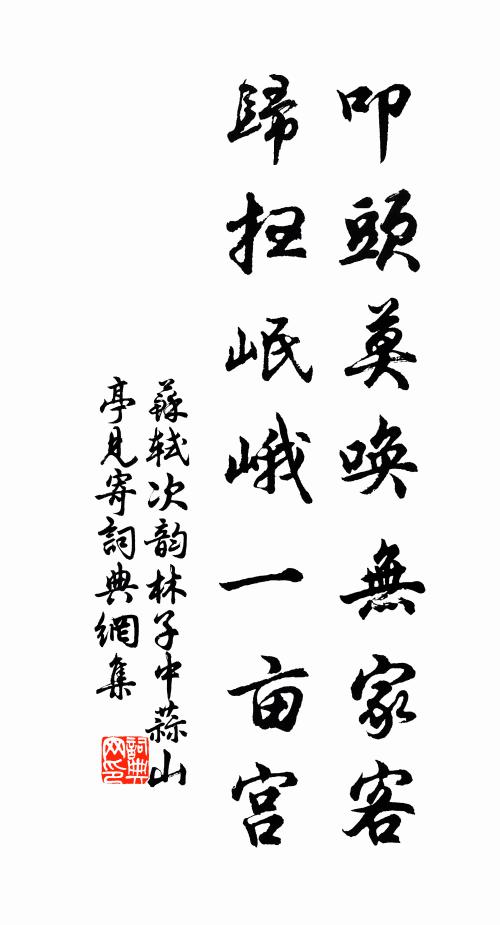 叩頭莫喚無家客
歸扫岷峨一亩宫
蘇轼次韵林子中蒜山
亭見寄詞典網集
詞典網印